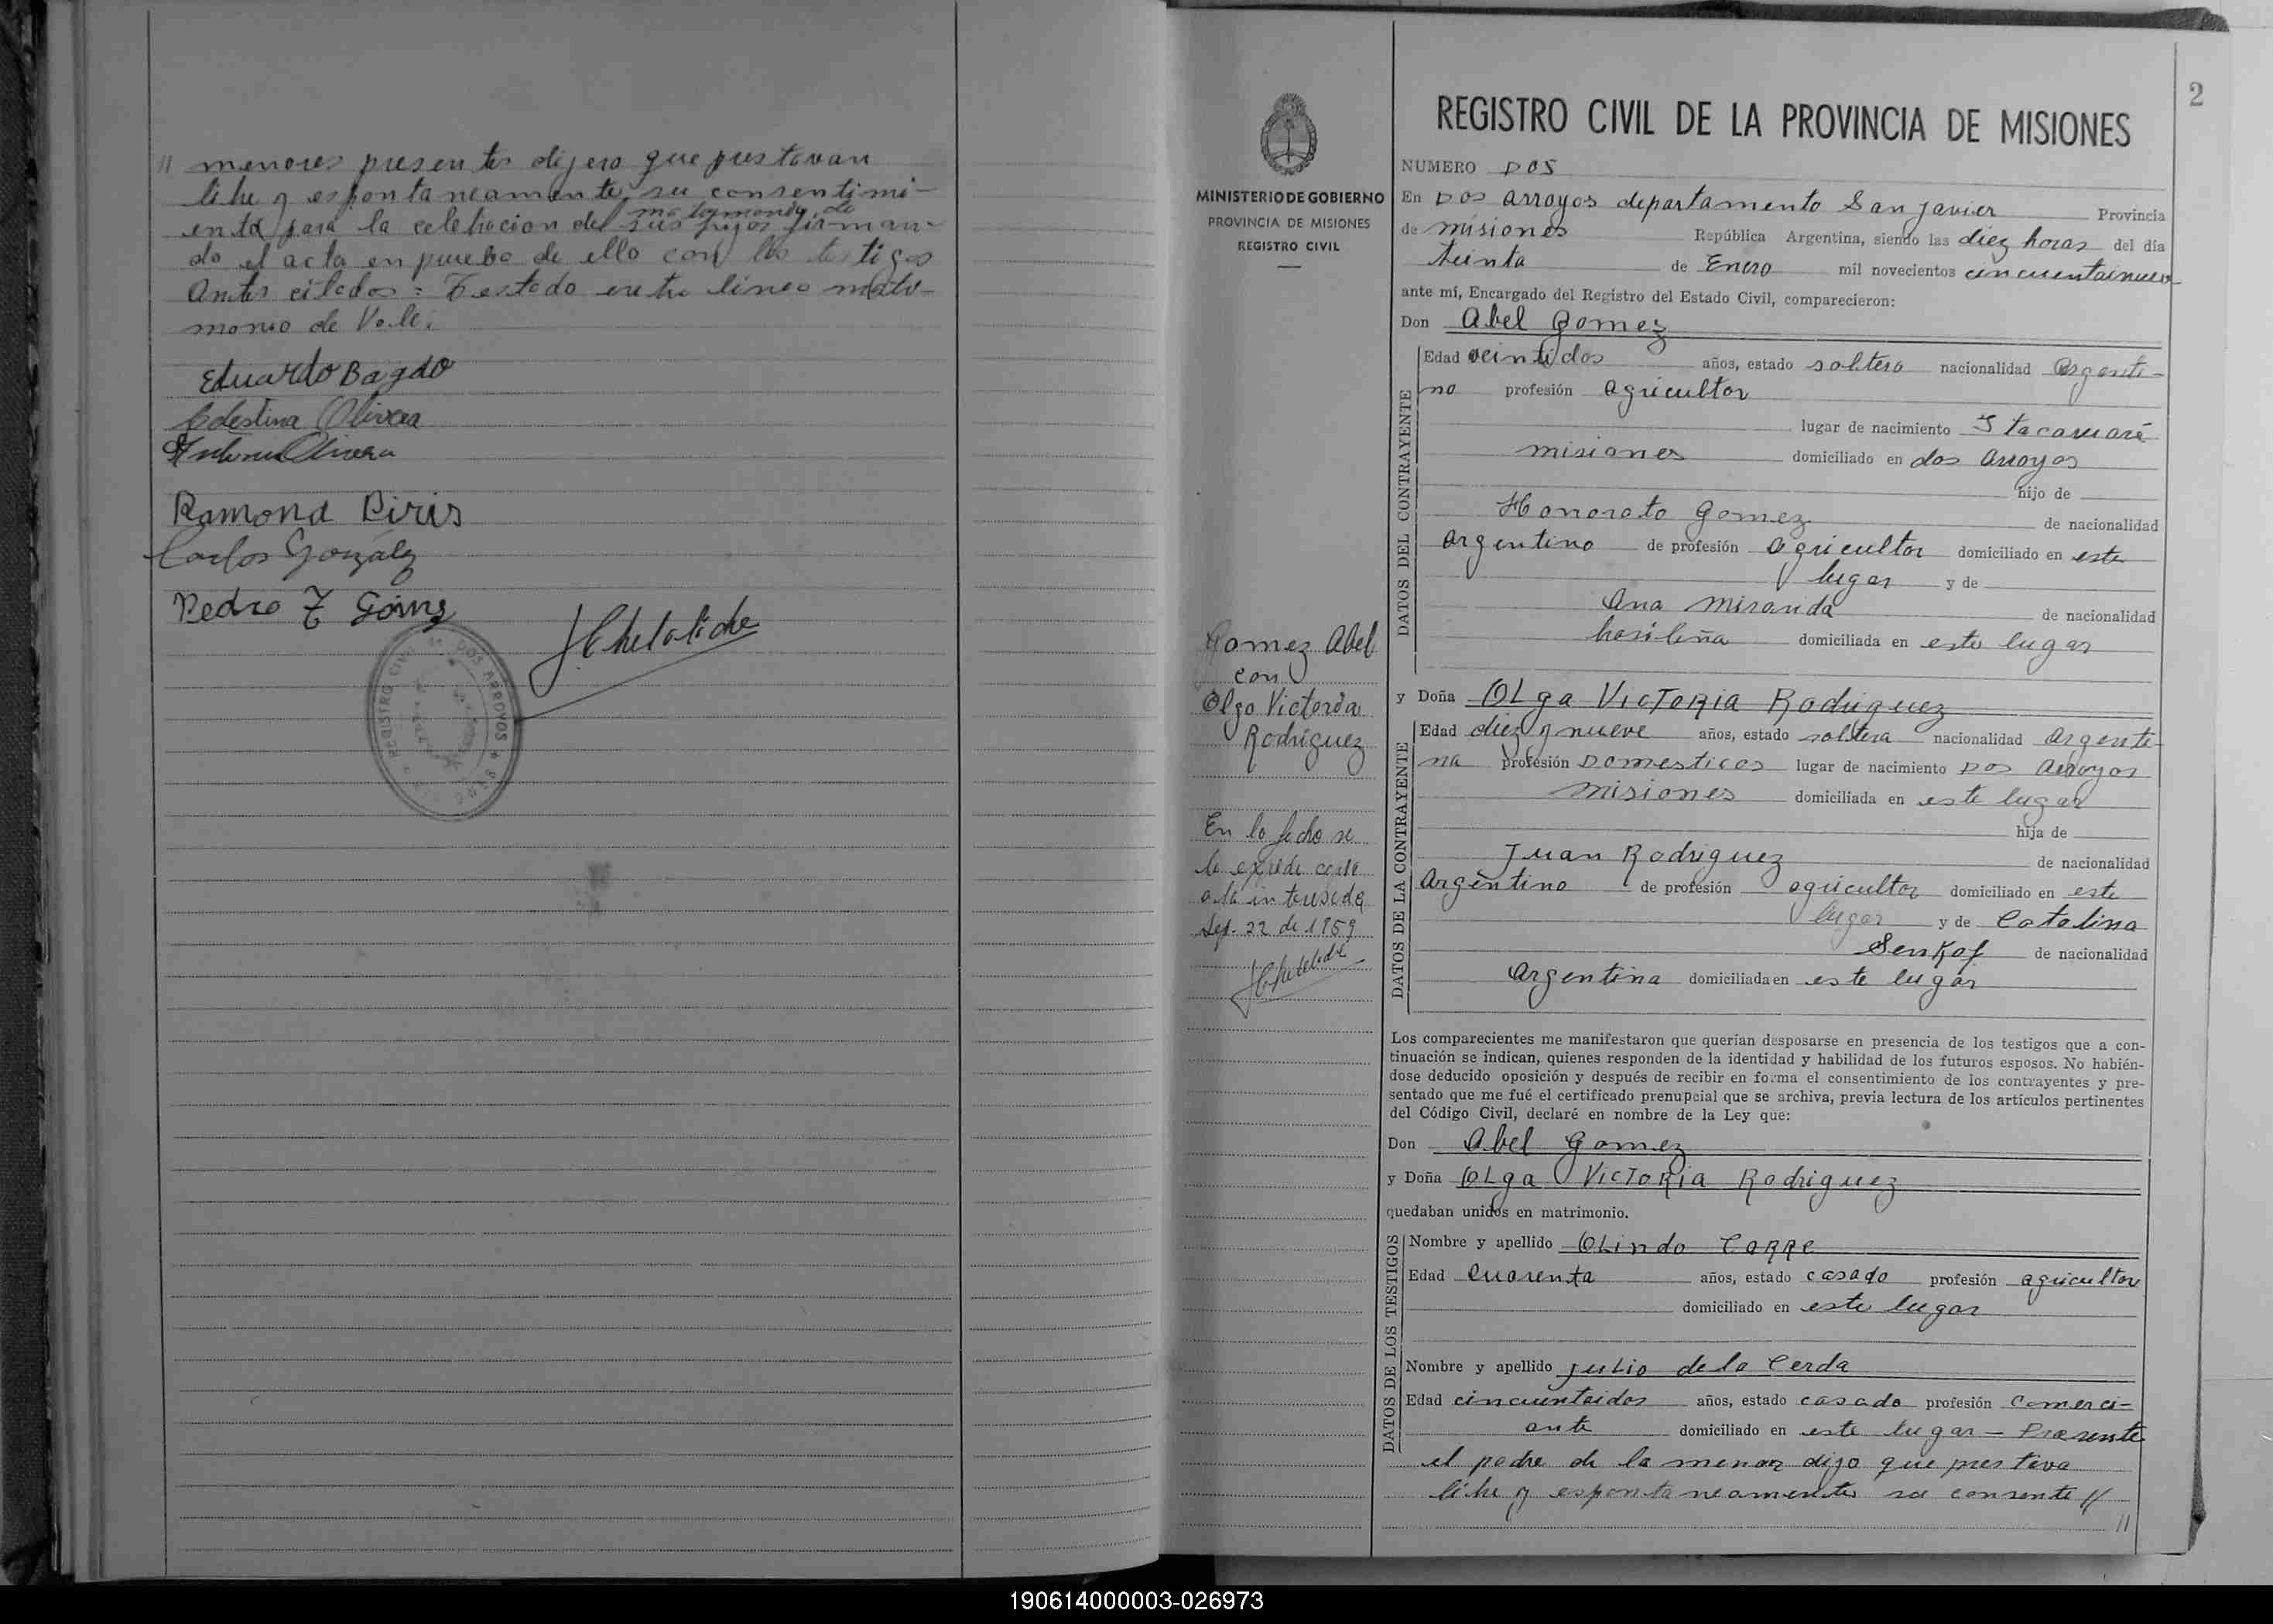 // menores presentes dijero que prestavan
libre y espontaneamente su consentimi-
ento para la celebracion del matrimonio de
sus hijos firman-
do el acta en prueba de ello con los testigos
Antes citados = Testado entre linea matri-
monio de Vale.
Eduardo Bagdo
Celestina Olivera
Antonio Olivera
Ramona Piris
Carlos González
Pedro
REGISTRO CIVIL
DOS ARROYOS
2
MINISTERIO DE GOBIERNO
PROVINCIA DE MISIONES
REGISTRO CIVIL
Gomez Abel
con
Olga Victoria
Rodriguez
En la fecha se
le expide
a la interesada
Sep. 22 de 1959
REGISTRO CIVIL DE LA PROVINCIA DE MISIONES
NUMERO DOS
En Dos Arroyos departamento San Javier Provincia
de misiones República Argentina, siendo las diez horas del día
treinta de Enero mil novecientos cincuentainueve
ante mí, Encargado del Registro del Estado Civil, comparecieron:
Don Abel Gomez
DATOS DEL CONTRAYENTE
Edad veintidos años, estado soltero nacionalidad Argenti-
no profesión agricultor
lugar de nacimiento Itacaruaré
misiones domiciliado en dos arroyos
hijo de
Honorato Gomez de nacionalidad
argentino de profesión agricultor domiciliado en este
lugar y de
Ana Miranda de nacionalidad
brasileña domiciliada en este lugar
y Doña OLga VICTORIA Rodriguez
DATOS DE LA CONTRAYENTE
Edad diez y nueve años, estado soltera nacionalidad argenti-
na profesión Domesticos lugar de nacimiento Dos arroyos
misiones domiciliada en este lugar
hija de
Juan Rodriguez de nacionalidad
Argentino de profesión agricultor domiciliado en este
lugar y de Catalina
Senkof de nacionalidad
argentina domiciliada en este lugar
Los comparecientes me manifestaron que querían desposarse en presencia de los testigos que a con-
tinuación se indican, quienes responden de la identidad y habilidad de los futuros esposos. No habién-
dose deducido oposición y después de recibir en forma el consentimiento de los contrayentes y pre-
sentado que me fué el certificado prenupcial que se archiva, previa lectura de los artículos pertinentes
del Código Civil, declaré en nombre de la Ley que:
Don Abel Gomez
y Doña OLga VICTORIA Rodriguez
quedaban unidos en matrimonio.
DATOS DE LOS TESTIGOS
Nombre y apellido OLindo CARRE
Edad cuarenta años, estado casado profesión agricultor
domiciliado en este lugar
Nombre y apellido Julio de la Cerda
Edad cincuentaidos años, estado casado profesión Comerci-
ante domiciliado en este lugar - Presente
el padre de la menor dijo que prestava
libre y espontaneamente su consenti //
//
190614000003-026973